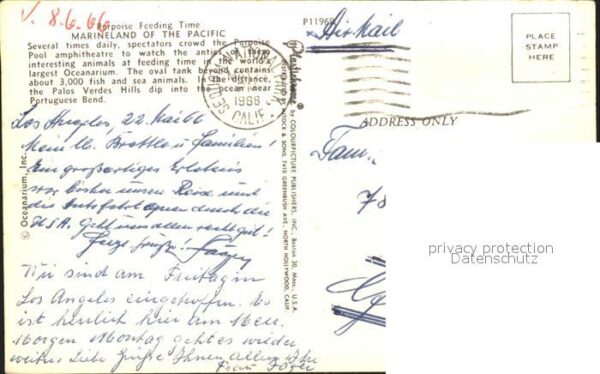 v. 8.6.66
Porpoise Feeding Time
MARINELAND OF THE PACIFIC
Several times daily, spectators crowd the Porpoise
Pool amphitheatre to watch the antics of these
interesting animals at feeding time in the world's
largest Oceanarium. The oval tank beyond contains
about 3,000 fish and sea animals. In the distance,
the Palos Verdes Hills dip into the ocean near
Portuguese Bend.
Los Angeles, 22. Mai 66
Familien!
Ein grossartiges Erlebnis
war bisher unsere Reise und
die durch die
USA. Geht uns allen recht gut!
Wir sind am Freitag in
Los Angeles eingetroffen. Es
ist herrlich hier am Meer.
Morgen Montag geht es wieder
weiter. Liebe Grüße Ihnen allen Ihre
Frau
© Oceanarium, Inc.
1966
CALIF.
Plastichrome
by COLOURPICTURE PUBLISHERS, INC. Boston 30, Mass. U.S.A.
& SONS, 7410 GREENBUSH AVE., NORTH HOLLYWOOD, CALIF.
Air Mail
PLACE
STAMP
HERE
ADDRESS ONLY
Fam.
78
privacy protection
Datenschutz